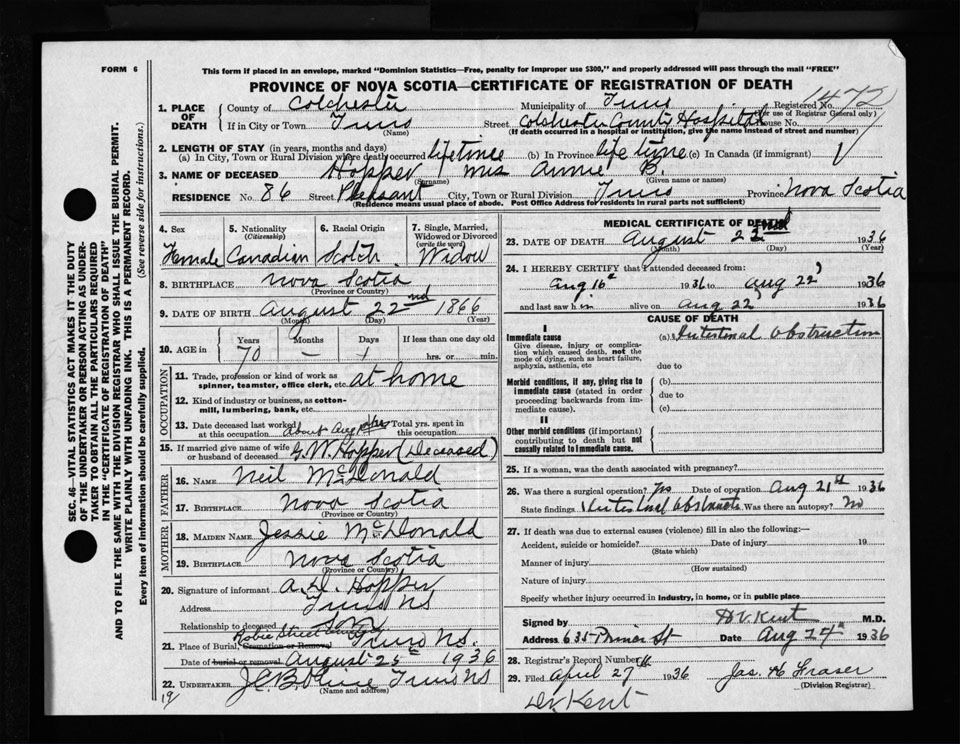 FORM 6
This form if placed in an envelope, marked "Dominion Statistics—Free, penalty for improper use $300," and properly addressed will pass through the mail "FREE"
PROVINCE OF NOVA SCOTIA—CERTIFICATE OF REGISTRATION OF DEATH
1. PLACE OF DEATH County of Colchester Municipality of Truro Registered No. 1472
(For use of Registrar General only)
If in City or Town Truro (Name) Street Colchester County Hospital House No.
(If death occurred in a hospital or institution, give the name instead of street and number)
2. LENGTH OF STAY (in years, months and days)
(a) In City, Town or Rural Division where death occurred lifetime (b) In Province life time (c) In Canada (if immigrant)
3. NAME OF DECEASED Hopper Mrs Annie B.
(Surname) (Given name or names)
RESIDENCE No. 86 Street Pleasant City, Town or Rural Division Truro Province Nova Scotia
(Residence means usual place of abode. Post Office Address for residents in rural parts not sufficient)
4. Sex Female
5. Nationality (Citizenship) Canadian
6. Racial Origin Scotch
7. Single, Married, Widowed or Divorced (write the word) Widow
8. BIRTHPLACE Nova Scotia
(Province or Country)
9. DATE OF BIRTH August 22nd 1866
(Month) (Day) (Year)
10. AGE in Years 70 Months — Days 1 If less than one day old hrs. or min.
OCCUPATION
11. Trade, profession or kind of work as spinner, teamster, office clerk, etc. at home
12. Kind of industry or business, as cotton-mill, lumbering, bank, etc.
13. Date deceased last worked at this occupation about Aug Total yrs. spent in this occupation
15. If married give name of wife or husband of deceased G.W. Hopper (Deceased)
FATHER
16. NAME Neil McDonald
17. BIRTHPLACE Nova Scotia
(Province or Country)
MOTHER
18. MAIDEN NAME Jessie McDonald
19. BIRTHPLACE Nova Scotia
(Province or Country)
20. Signature of informant A.D. Hopper
Address Truro NS
Relationship to deceased Son
21. Place of Burial, Cremation or Removal Robie Street Cemetery Truro NS.
Date of burial or removal August 25th 1936
22. UNDERTAKER Truro NS
(Name and address)
19
MEDICAL CERTIFICATE OF DEATH
23. DATE OF DEATH August 22nd 1936
(Month) (Day) (Year)
24. I HEREBY CERTIFY that I attended deceased from:
Aug 16th 1936 to Aug 22, 1936
and last saw h in alive on Aug 22 1936
CAUSE OF DEATH
I
Immediate cause
Give disease, injury or complication which caused death, not the mode of dying, such as heart failure, asphyxia, asthenia, etc
(a) Intestinal Obstruction
due to
Morbid conditions, if any, giving rise to immediate cause (stated in order proceeding backwards from immediate cause).
(b)
due to
(c)
II
Other morbid conditions (if important) contributing to death but not causally related to immediate cause.
25. If a woman, was the death associated with pregnancy?
26. Was there a surgical operation? Yes Date of operation Aug 21st 1936
State findings Intestinal Obstruct Was there an autopsy? No
27. If death was due to external causes (violence) fill in also the following:—
Accident, suicide or homicide? Date of injury 19
(State which)
Manner of injury
(How sustained)
Nature of injury
Specify whether injury occurred in industry, in home, or in public place
Signed by H.V. Kent M.D.
Address 635 Prince St Date Aug 24th 1936
28. Registrar's Record Number
29. Filed April 27th 1936 Jas. H Fraser
(Division Registrar)
Dr. Kent
SEC. 46—VITAL STATISTICS ACT MAKES IT THE DUTY
OF THE UNDERTAKER OR PERSON ACTING AS UNDER-
TAKER TO OBTAIN ALL THE PARTICULARS REQUIRED
IN THE "CERTIFICATE OF REGISTRATION OF DEATH"
AND TO FILE THE SAME WITH THE DIVISION REGISTRAR WHO SHALL ISSUE THE BURIAL PERMIT.
WRITE PLAINLY WITH UNFADING INK. THIS IS A PERMANENT RECORD.
Every item of information should be carefully supplied. (See reverse side for instructions.)